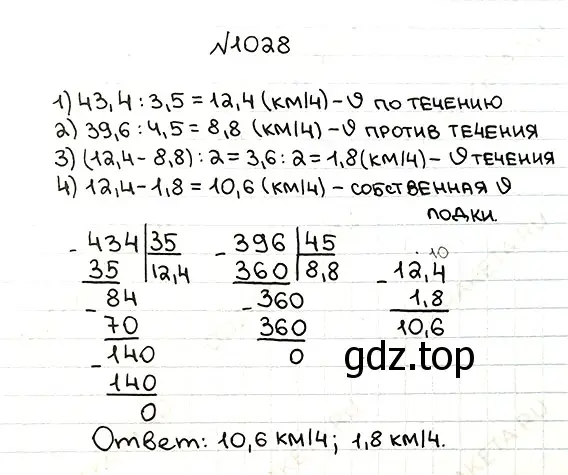 №1028
1) 43,4 : 3,5 = 12,4 (км/ч) – υ по течению
2) 39,6 : 4,5 = 8,8 (км/ч) – υ против течения
3) (12,4 - 8,8) : 2 = 3,6 : 2 = 1,8 (км/ч) – υ течения
4) 12,4 – 1,8 = 10,6 (км/ч) – собственная υ
лодки.
- 434 | 35
35 | 12,4
- 84
70
- 140
140
0
- 396 | 45
360 | 8,8
- 360
360
0
. 10
- 12,4
1,8
10,6
gdz.top
Ответ: 10,6 км/ч; 1,8 км/ч.